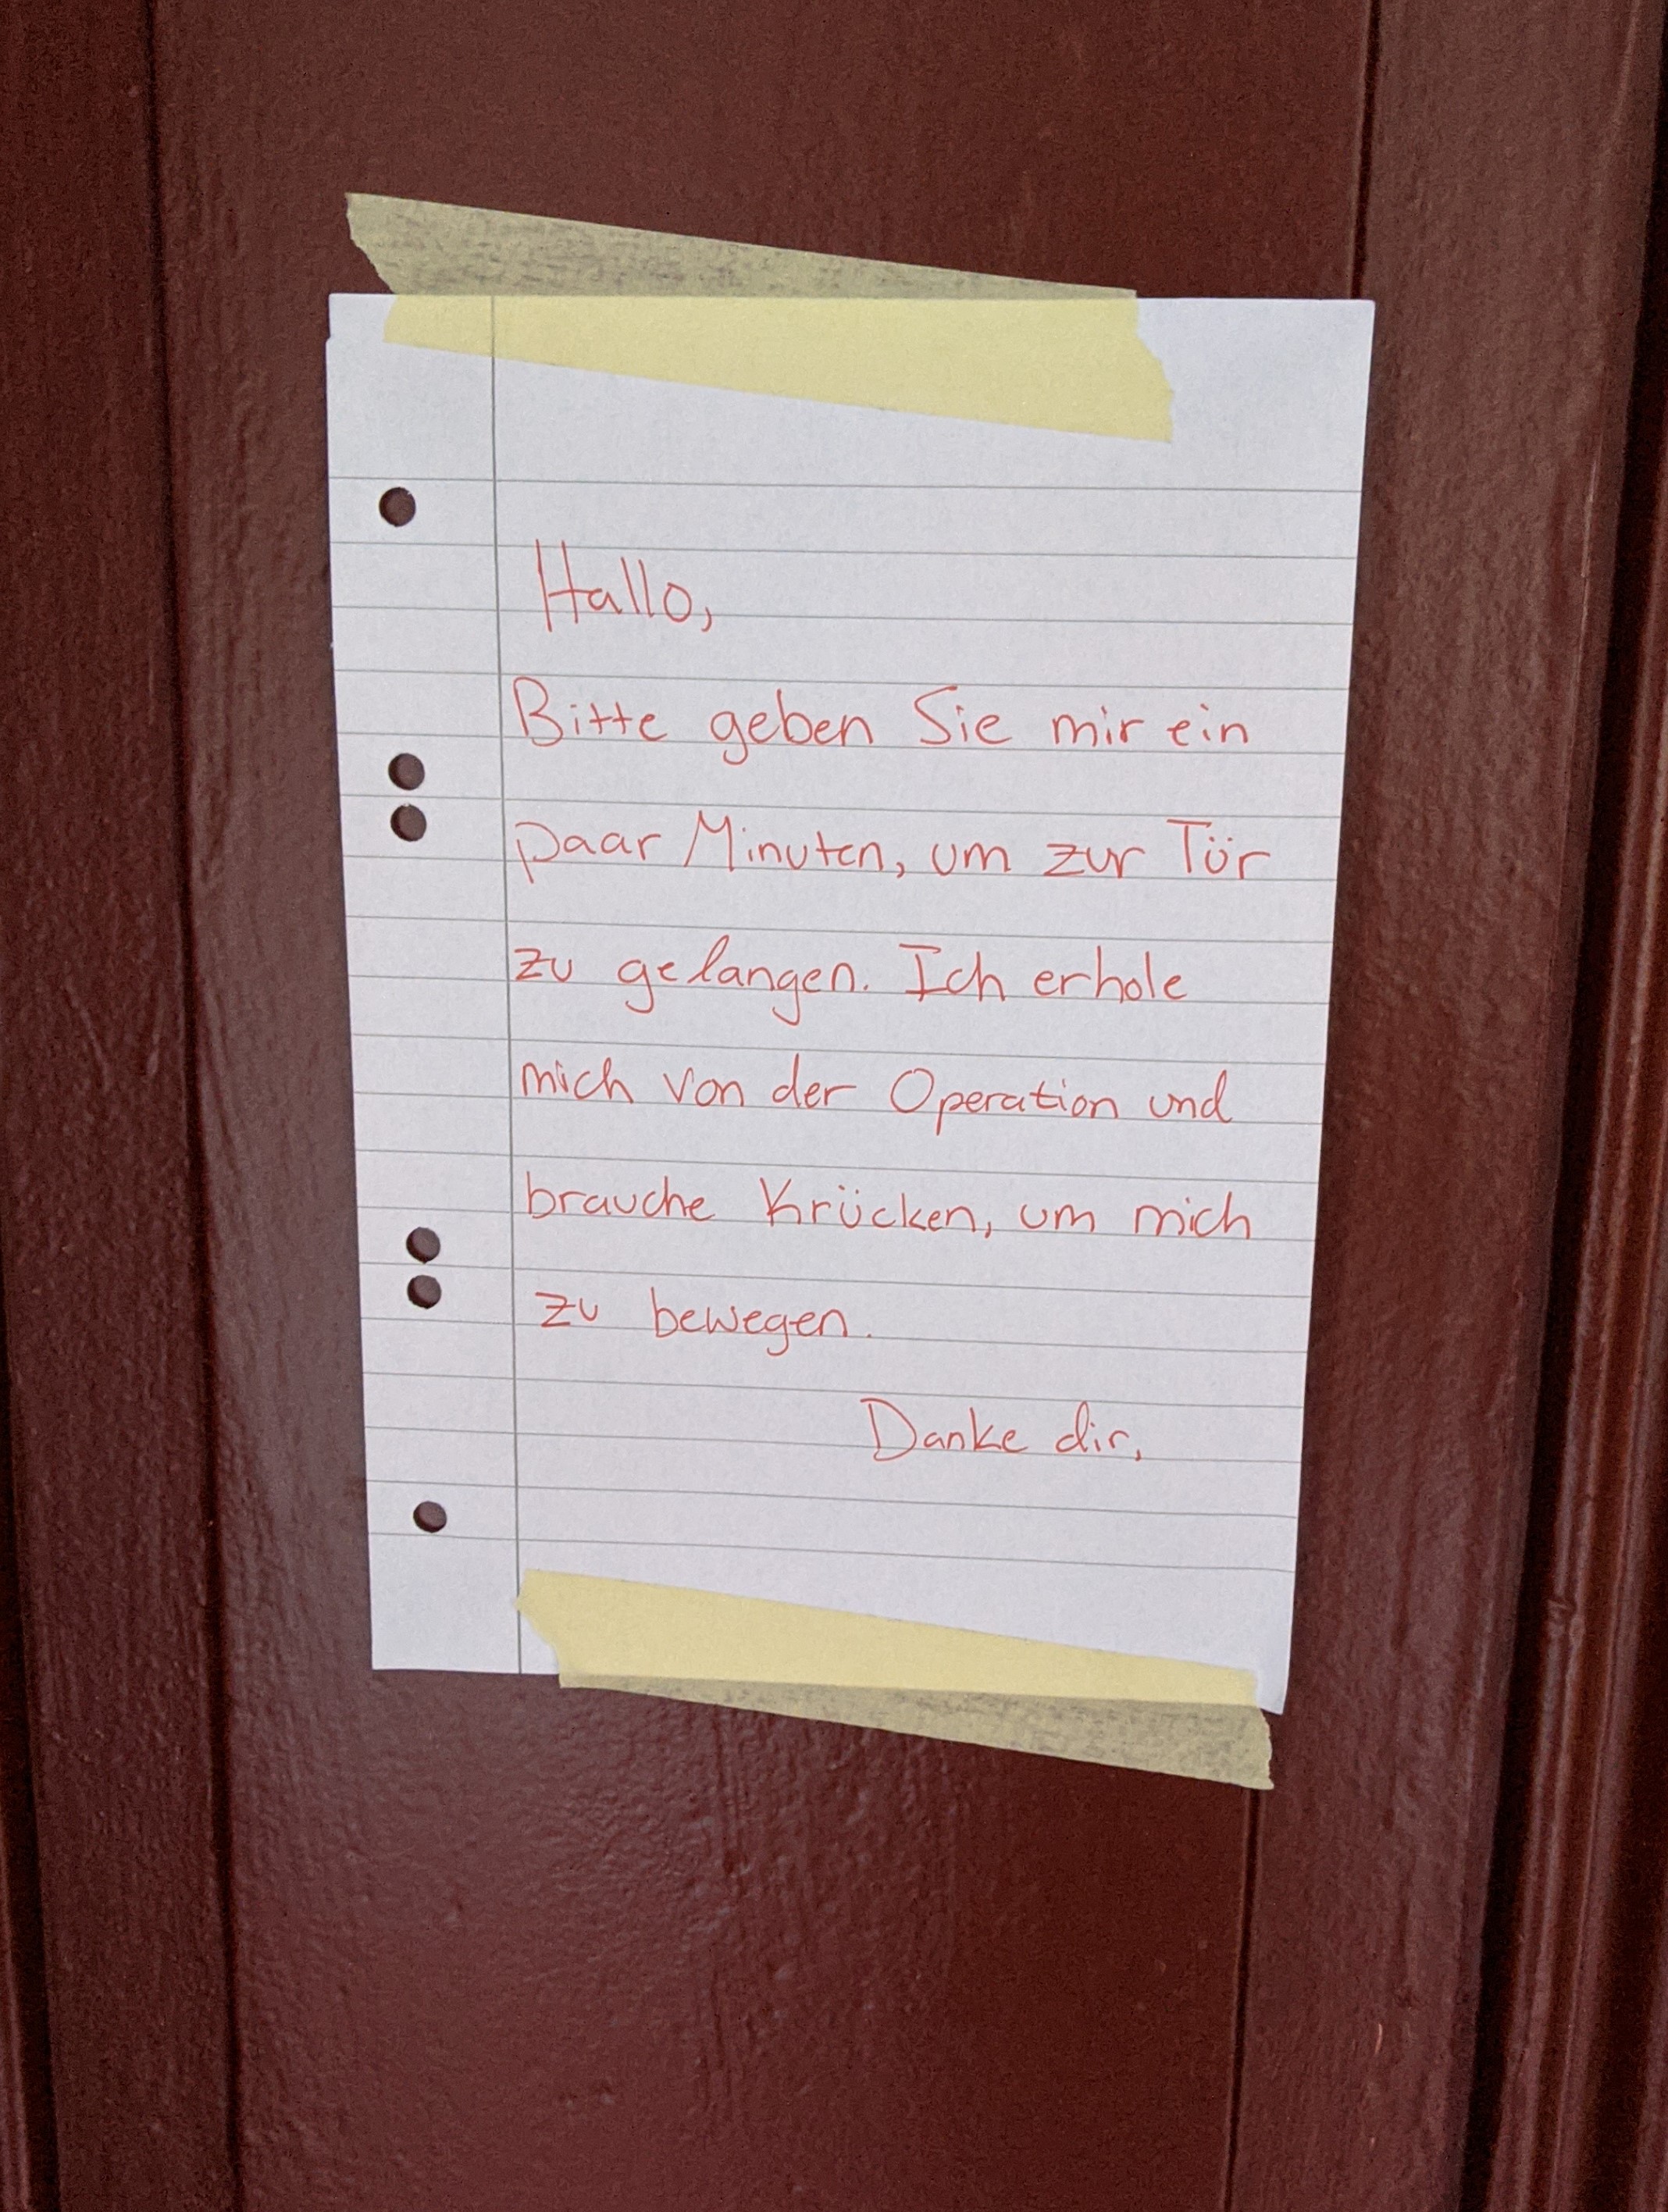 Hallo,
Bitte geben Sie mir ein
paar Minuten, um zur Tür
zu gelangen. Ich erhole
mich von der Operation und
brauche Krücken, um mich
zu bewegen.
Danke dir,